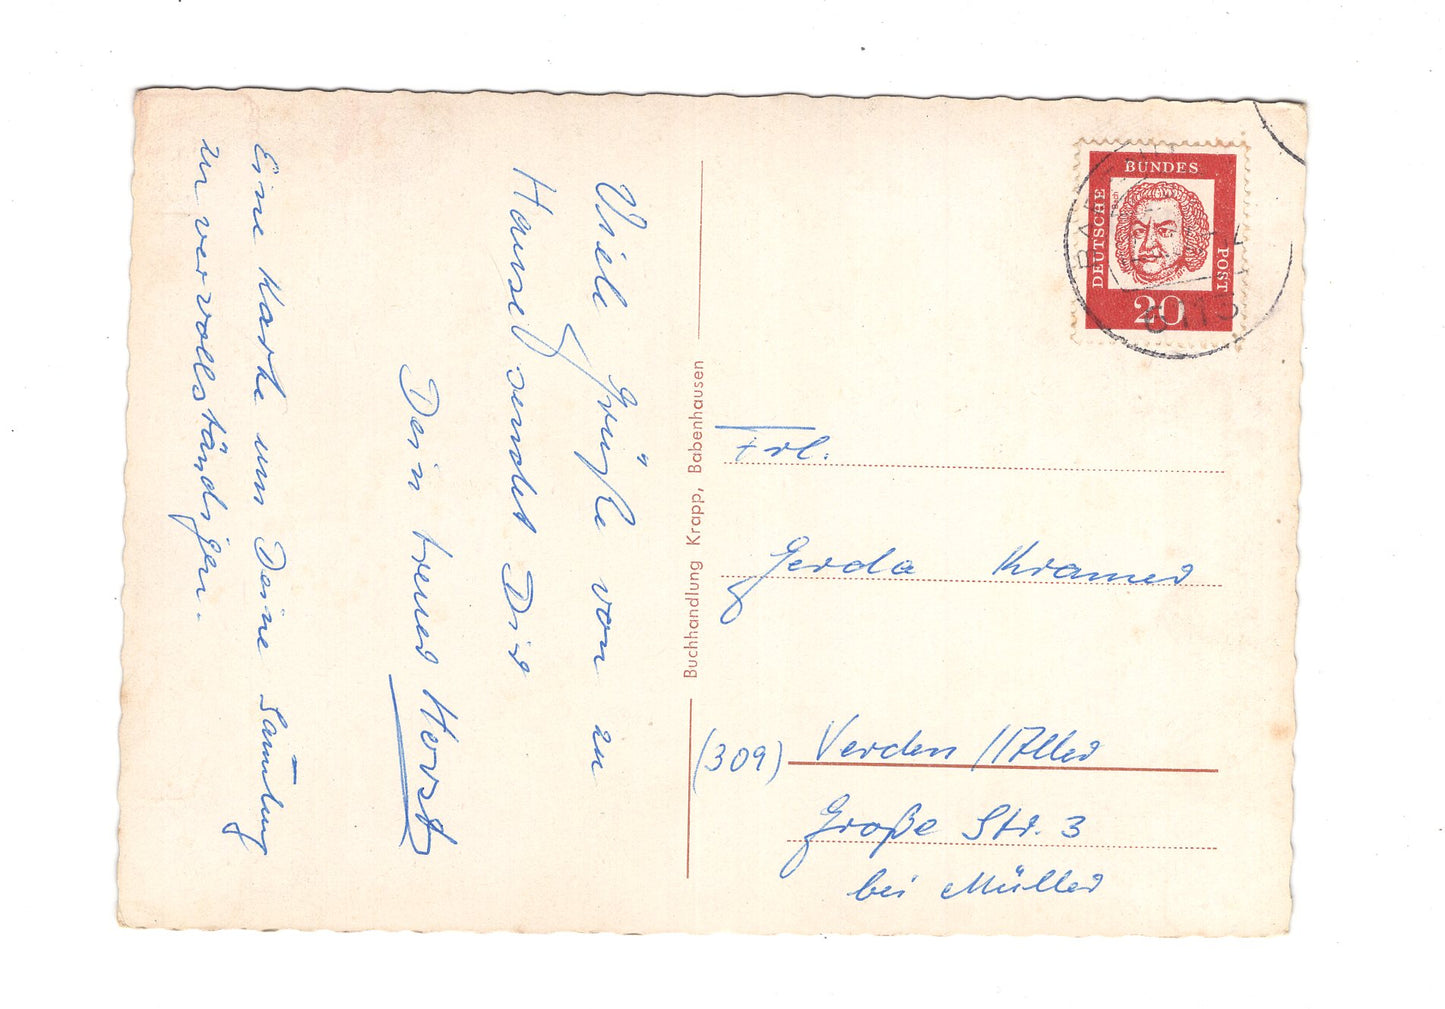 Viele Grüße von zu
Hause sendet Dir
Dein treuer Horst
Eine Karte um Deine Sam̅lung
zu vervollständigen.
Buchhandlung Krapp, Babenhausen
DEUTSCHE
BUNDES
POST
20
6113
Frl.
Gerda Kramer
(309) Verden / Aller
Große Str. 3
bei Müller